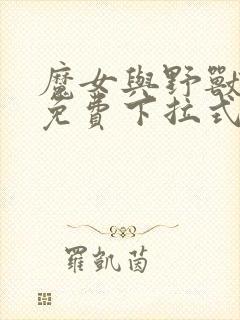 魔女與野獸
免費下拉式
羅凱茵